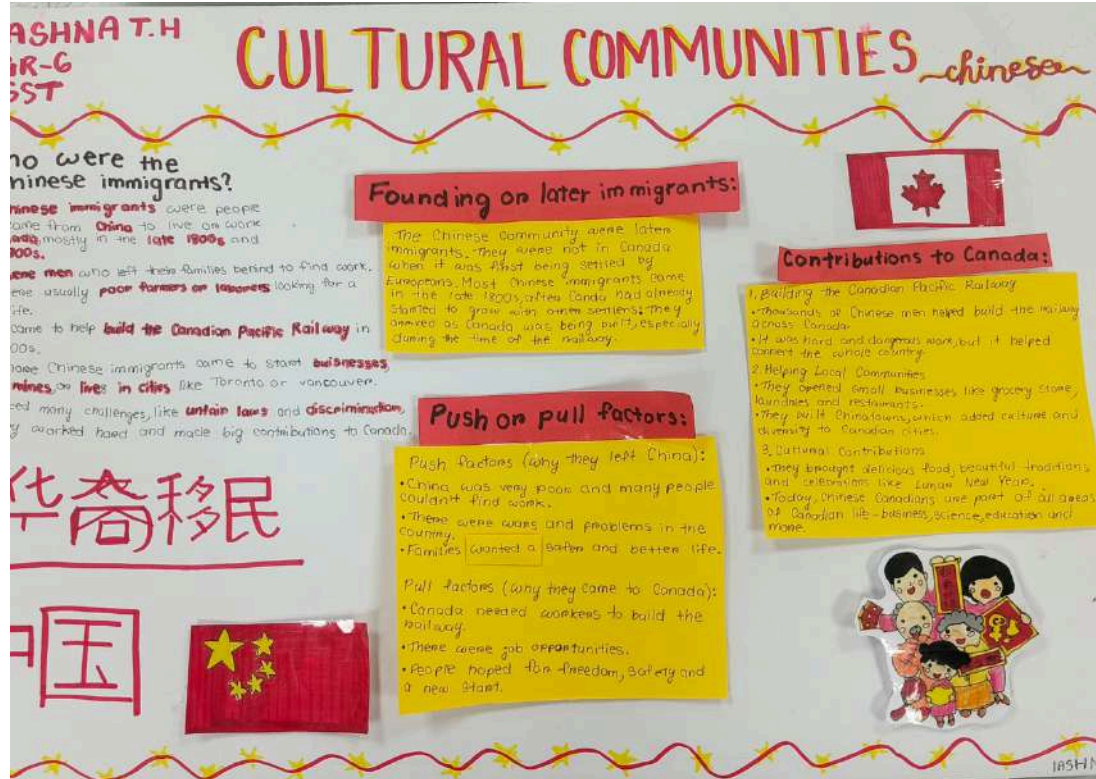 ASHNA T.H
GR-6
SST
CULTURAL COMMUNITIES
~chinese~
ho were the
hinese immigrants?
hinese immigrants were people
ame from China to live or work
ada, mostly in the late 1800s and
00s.
ere men who left their families behind to find work.
ere usually poor farmers or laborers looking for a
ife.
came to help build the Canadian Pacific Railway in
00s.
ome Chinese immigrants came to start buisnesses,
mines, or lives in cities like Toronto or vancouver.
ced many challenges, like unfair laws and discrimination,
y worked hard and made big contributions to Canada.
华裔移民
国
Founding or later immigrants:
The Chinese Community were later
immigrants. They were not in Canada
when it was first being settled by
Europeans. Most Chinese immigrants came
in the late 1800s, after Canda had already
started to grow with other settlers. They
arrived as Canada was being built, especially
during the time of the railway.
Push or pull factors:
Push factors (why they left China):
•China was very poor and many people
couldn't find work.
•There were wars and problems in the
country.
•Families wanted a safer and better life.
Pull factors (why they came to Canada):
•Canada needed workers to build the
railway.
•There were job opportunities.
•People hoped for freedom, safety and
a new start.
Contributions to Canada:
1. Building the Canadian Pacific Railway
•Thousands of Chinese men helped build the railway
across Canada.
•It was hard and dangerous work, but it helped
connect the whole country.
2. Helping Local Communities
•They opened small businesses like grocery store,
laundries and restaurants.
•They built Chinatowns, which added culture and
diversity to Canadian cities.
3. Cultural Contributions
•They brought delicious food, beautiful traditions
and celebrations like Lunar New Year.
•Today, Chinese Canadians are part of all areas
of Canadian life - business, science, education and
more.
IASHN